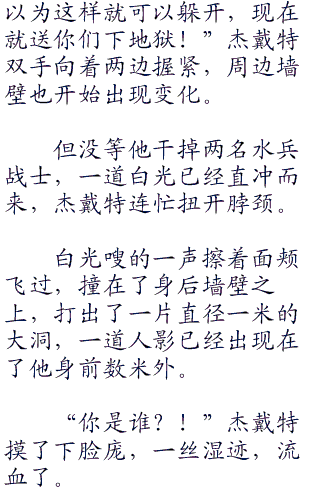 以为这样就可以躲开，现在
就送你们下地狱！”杰戴特
双手向着两边握紧，周边墙
壁也开始出现变化。
但没等他干掉两名水兵
战士，一道白光已经直冲而
来，杰戴特连忙扭开脖颈。
白光嗖的一声擦着面颊
飞过，撞在了身后墙壁之
上，打出了一片直径一米的
大洞，一道人影已经出现在
了他身前数米外。
“你是谁？！”杰戴特
摸了下脸庞，一丝湿迹，流
血了。